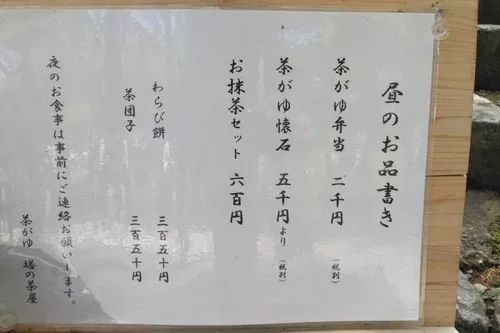 昼のお品書き
茶がゆ弁当 二千円 (税別)
茶がゆ懐石 五千円より (税別)
お抹茶セット 六百円
わらび餅 三百五十円
茶団子 三百五十円
夜のお食事は事前にご連絡お願いします。
茶がゆ 塔の茶屋